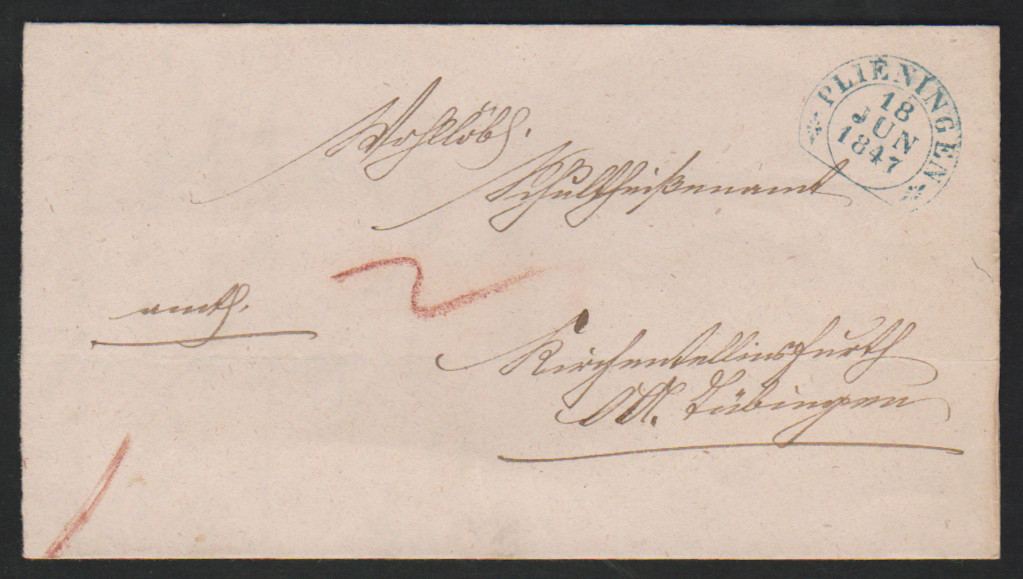 PLIENINGEN
18
JUN
1847
Wohllöbl.
Schultheißenamt
amtl.
Kirchentellinsfurth
OA. Tübingen